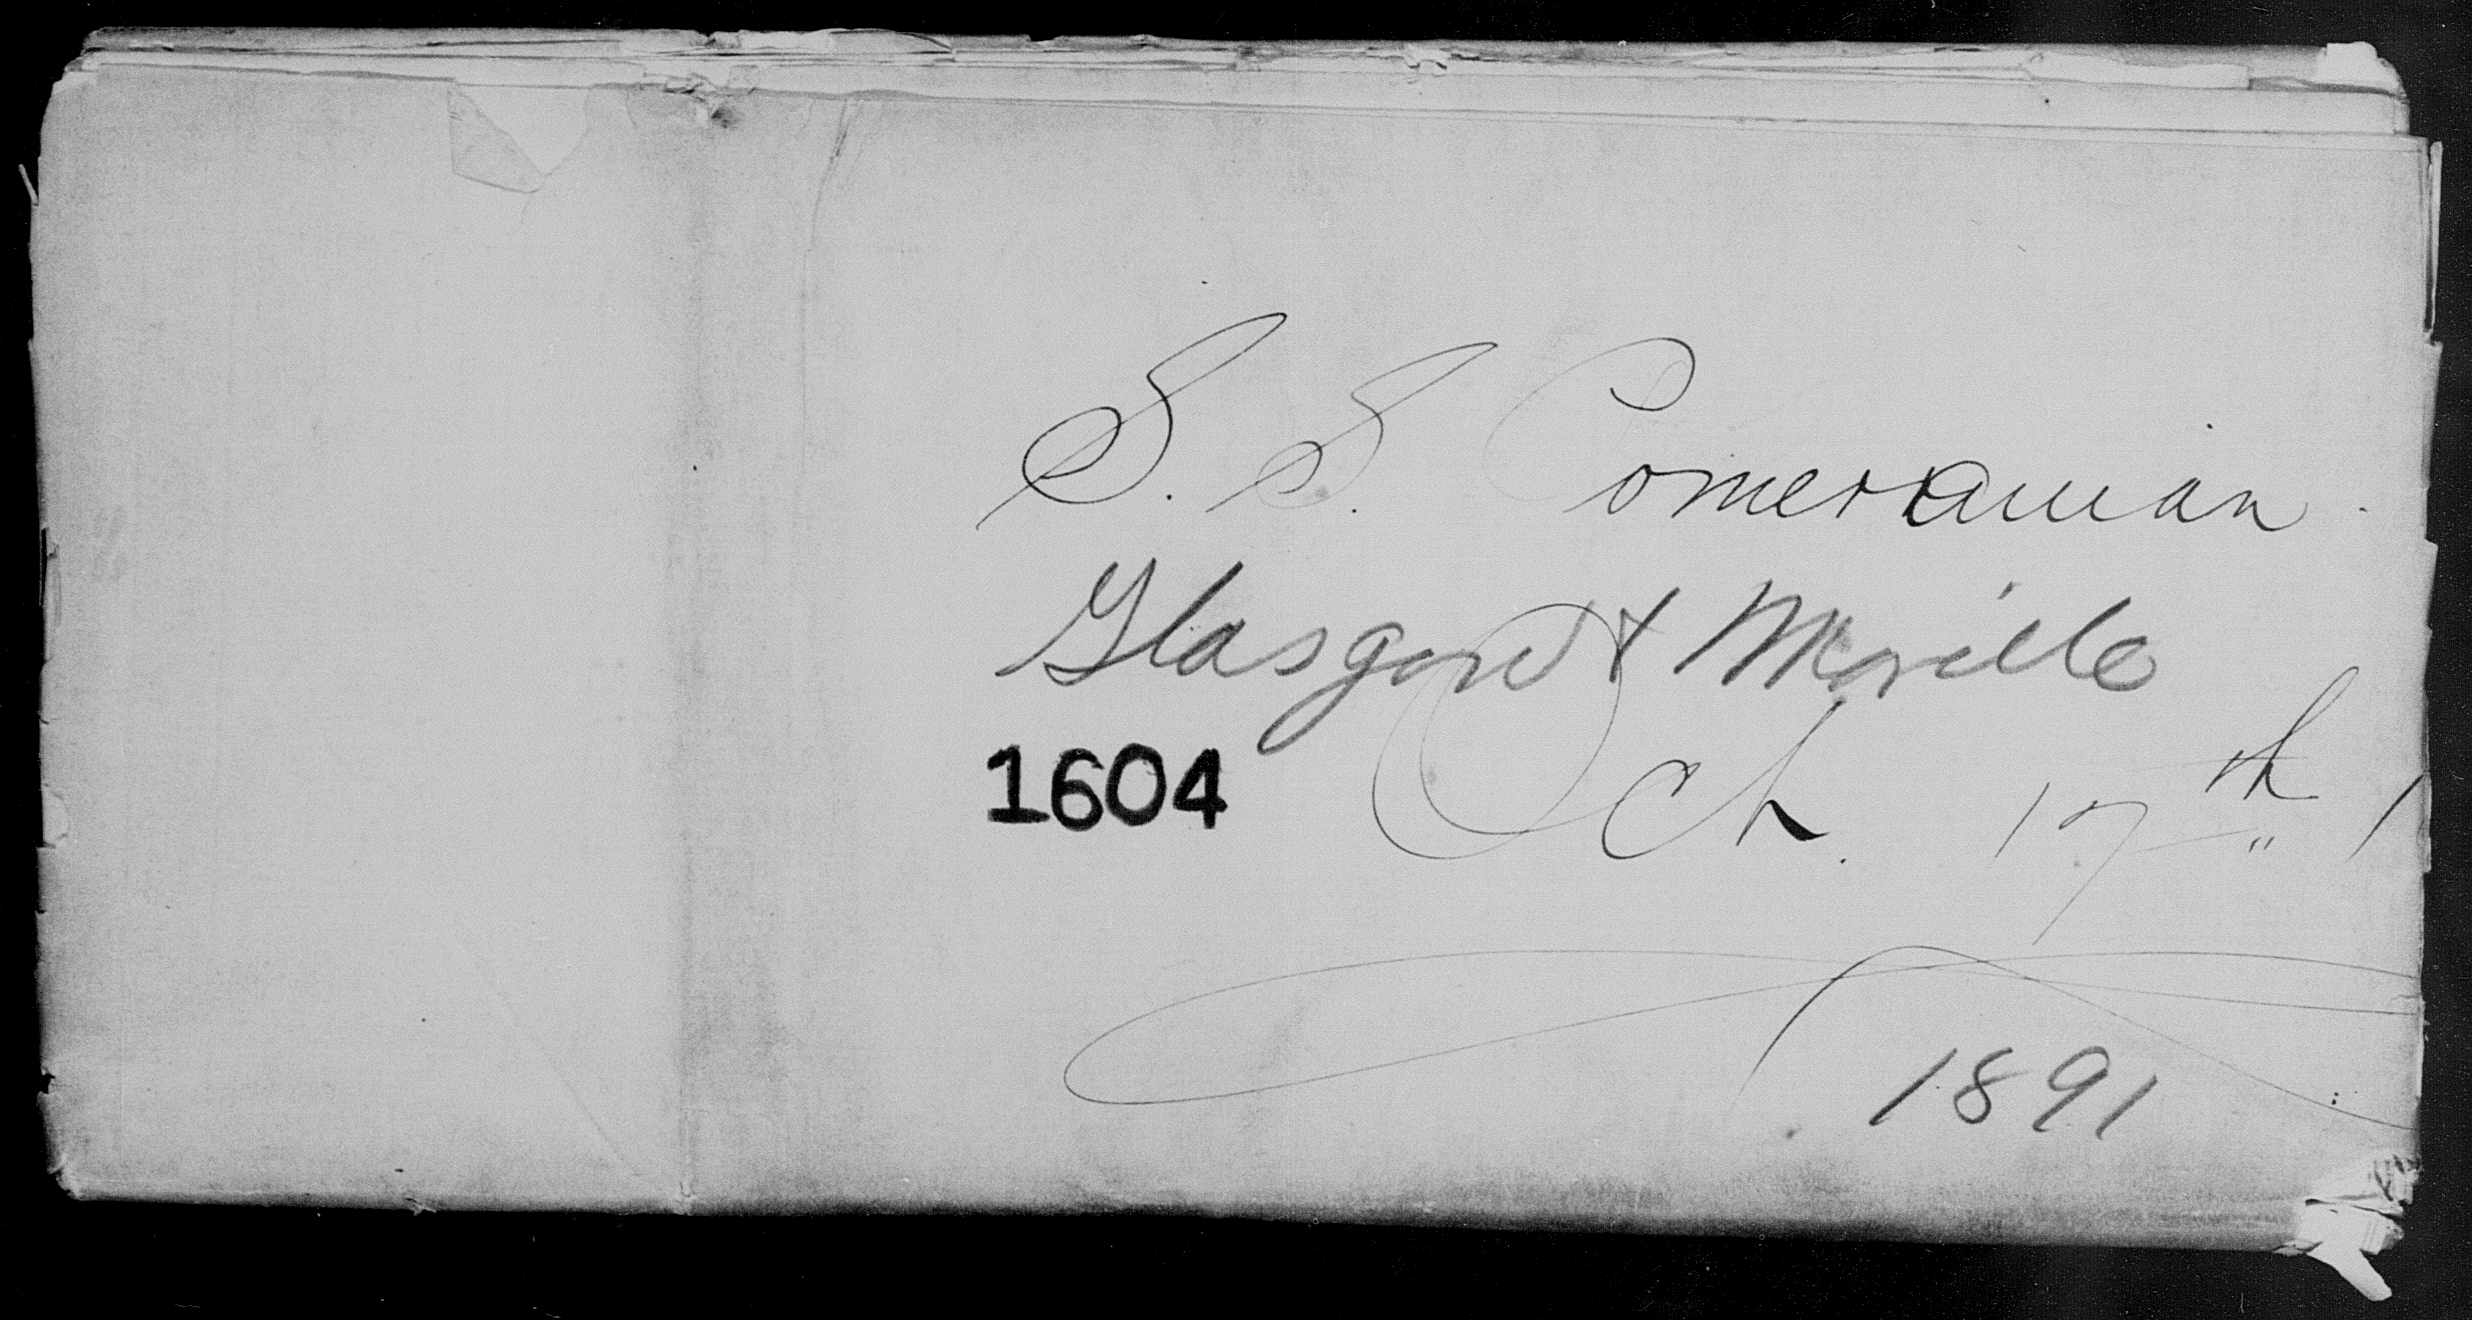 S. S. Pomeranian
Glasgow & Moville
1604 Oct. 17th
1891